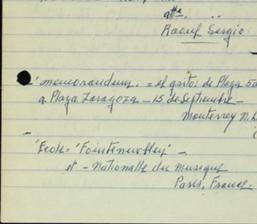 atte.
Raouf Sergio
"memorandum. = el gritos de Playa Sa
a Playa Zaragoza — 15 de Septiembre —
Monterrey N.L
"Ecole" "Fointenvotley" —
et - Nationalle du musique
Paris, France.